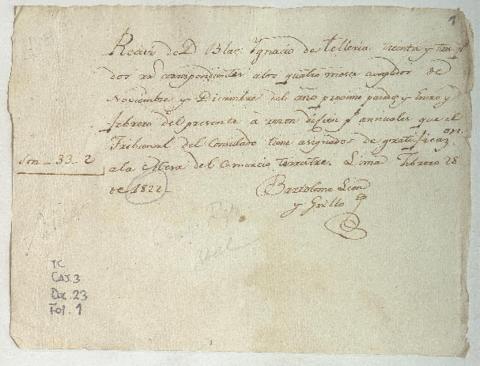 1
Recivi de D. Blas Ignacio de Telleria treinta y tres p.
dos rs. correspondientes a los quatro meses cumplidos de
Noviembre y Diciembre del año proximo pasado, y Enero y
febrero del presente à razon de cien p.s annuales que el
Tribunal del Consulado tiene asignados de gratificaz.on
a la Mesa del Comercio Terrestre. Lima Febrero 28
de 1822
Son 33 . 2
Bartolome Leon
y Grillo
TC
CAJ. 3
Doc. 23
Fol. 1